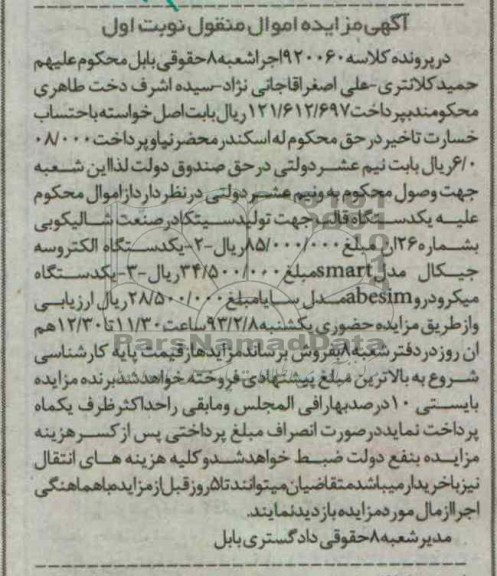 آگهی مزایده اموال منقول نوبت اول
در پرونده کلاسه ۹۲۰۰۶۰ اجرا شعبه ۸ حقوقی بابل محکوم علیهم
حمید کلانتری-علی اصغر اقاجانی نژاد-سیده اشرف دخت طاهری
محکومند بپرداخت ۱۲۱/۶۱۲/۶۹۷ ریال بابت اصل خواسته باحتساب
خسارت تاخیر در حق محکوم له اسکندر محضرنیا و پرداخت ۰۸/۰۰۰
۶/۰ ریال بابت نیم عشر دولتی در حق صندوق دولت لذا این شعبه
جهت وصول محکوم به و نیم عشر دولتی در نظر دارد از اموال محکوم
علیه یکدستگاه قالب جهت تولید سیتکا در صنعت شالیکوبی
بشماره ۲۶ ان مبلغ ۸۵/۰۰۰/۰۰۰ ریال-۲-یکدستگاه الکتروسه
جیکال مدل smart مبلغ ۳۴/۵۰۰/۰۰۰ ریال-۳-یکدستگاه
میکرودرو abesim مدل سایا مبلغ ۲۸/۵۰۰/۰۰۰ ریال ارزیابی
و از طریق مزایده حضوری یکشنبه ۹۳/۲/۸ ساعت ۱۱/۳۰ تا ۱۲/۳۰ هم
ان روز در دفتر شعبه ۸ بفروش برساند مزایده از قیمت پایه کارشناسی
شروع به بالاترین مبلغ پیشنهادی فروخته خواهد شد برنده مزایده
بایستی ۱۰ درصد بها را فی المجلس و مابقی را حداکثر ظرف یکماه
پرداخت نماید در صورت انصراف مبلغ پرداختی پس از کسر هزینه
مزایده بنفع دولت ضبط خواهد شد و کلیه هزینه های انتقال
نیز با خریدار میباشد متقاضیان میتوانند تا ۵ روز قبل از مزایده با هماهنگی
اجرا از مال مورد مزایده بازدید نمایند.
مدیر شعبه ۸ حقوقی دادگستری بابل
ParsNamadData